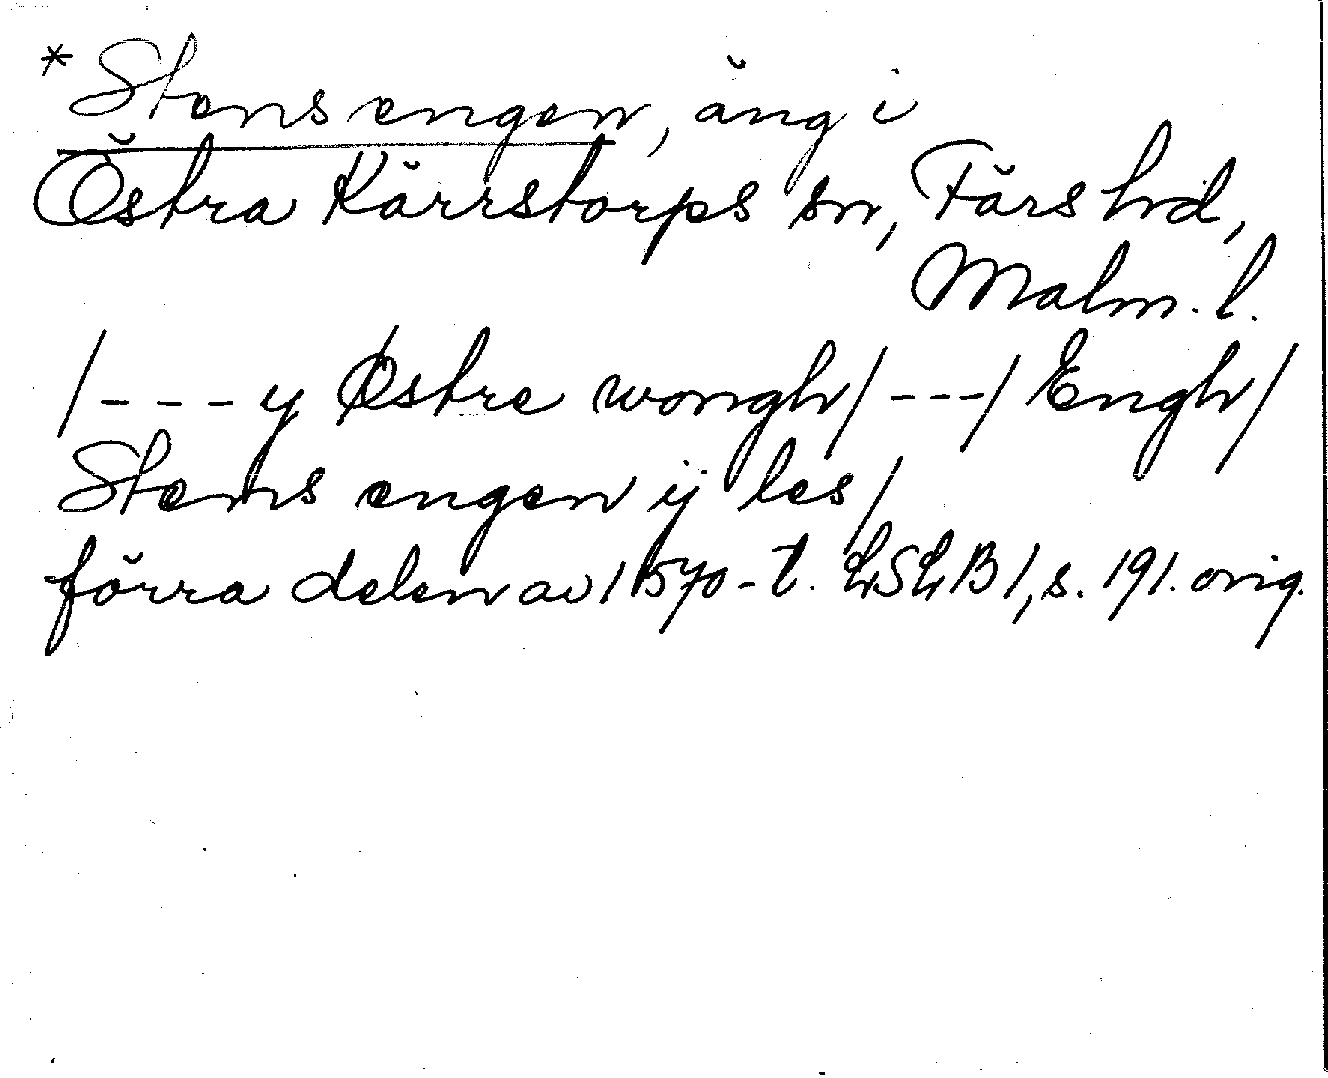 *Stens engen, äng i
Östra Kärrstorps sn, Färs hd,
Malm. l.
/--- y Østre wongh/ ---/ Engh/
Stens engen ij les/
förra delen av 1570-t. LSLB 1, s. 191. orig.